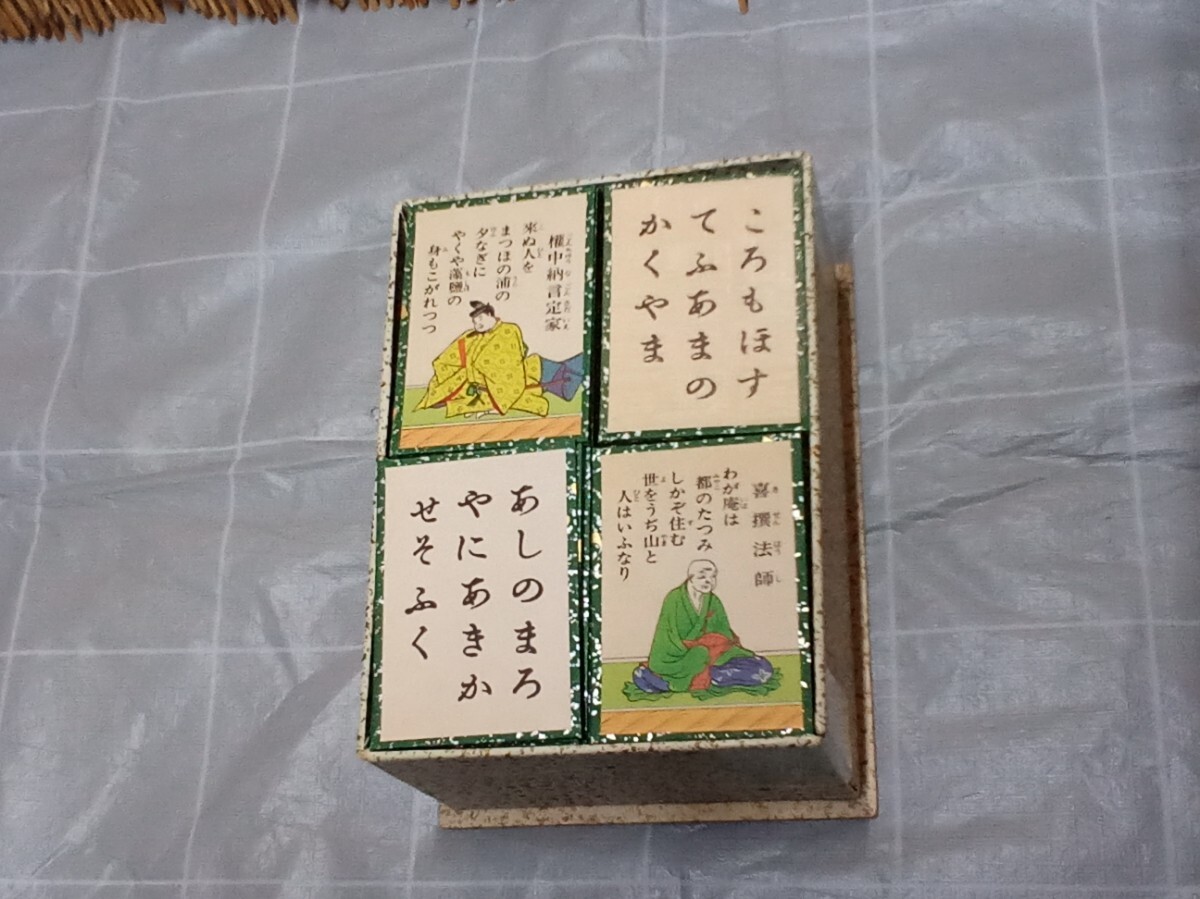 権中納言定家
来ぬ人を
まつほの浦の
夕なぎに
やくや藻塩の
身もこがれつつ
ころもほす
てふあまの
かくやま
あしのまろ
やにあきか
せそふく
喜撰法師
わが庵は
都のたつみ
しかぞ住む
世をうぢ山と
人はいふなり